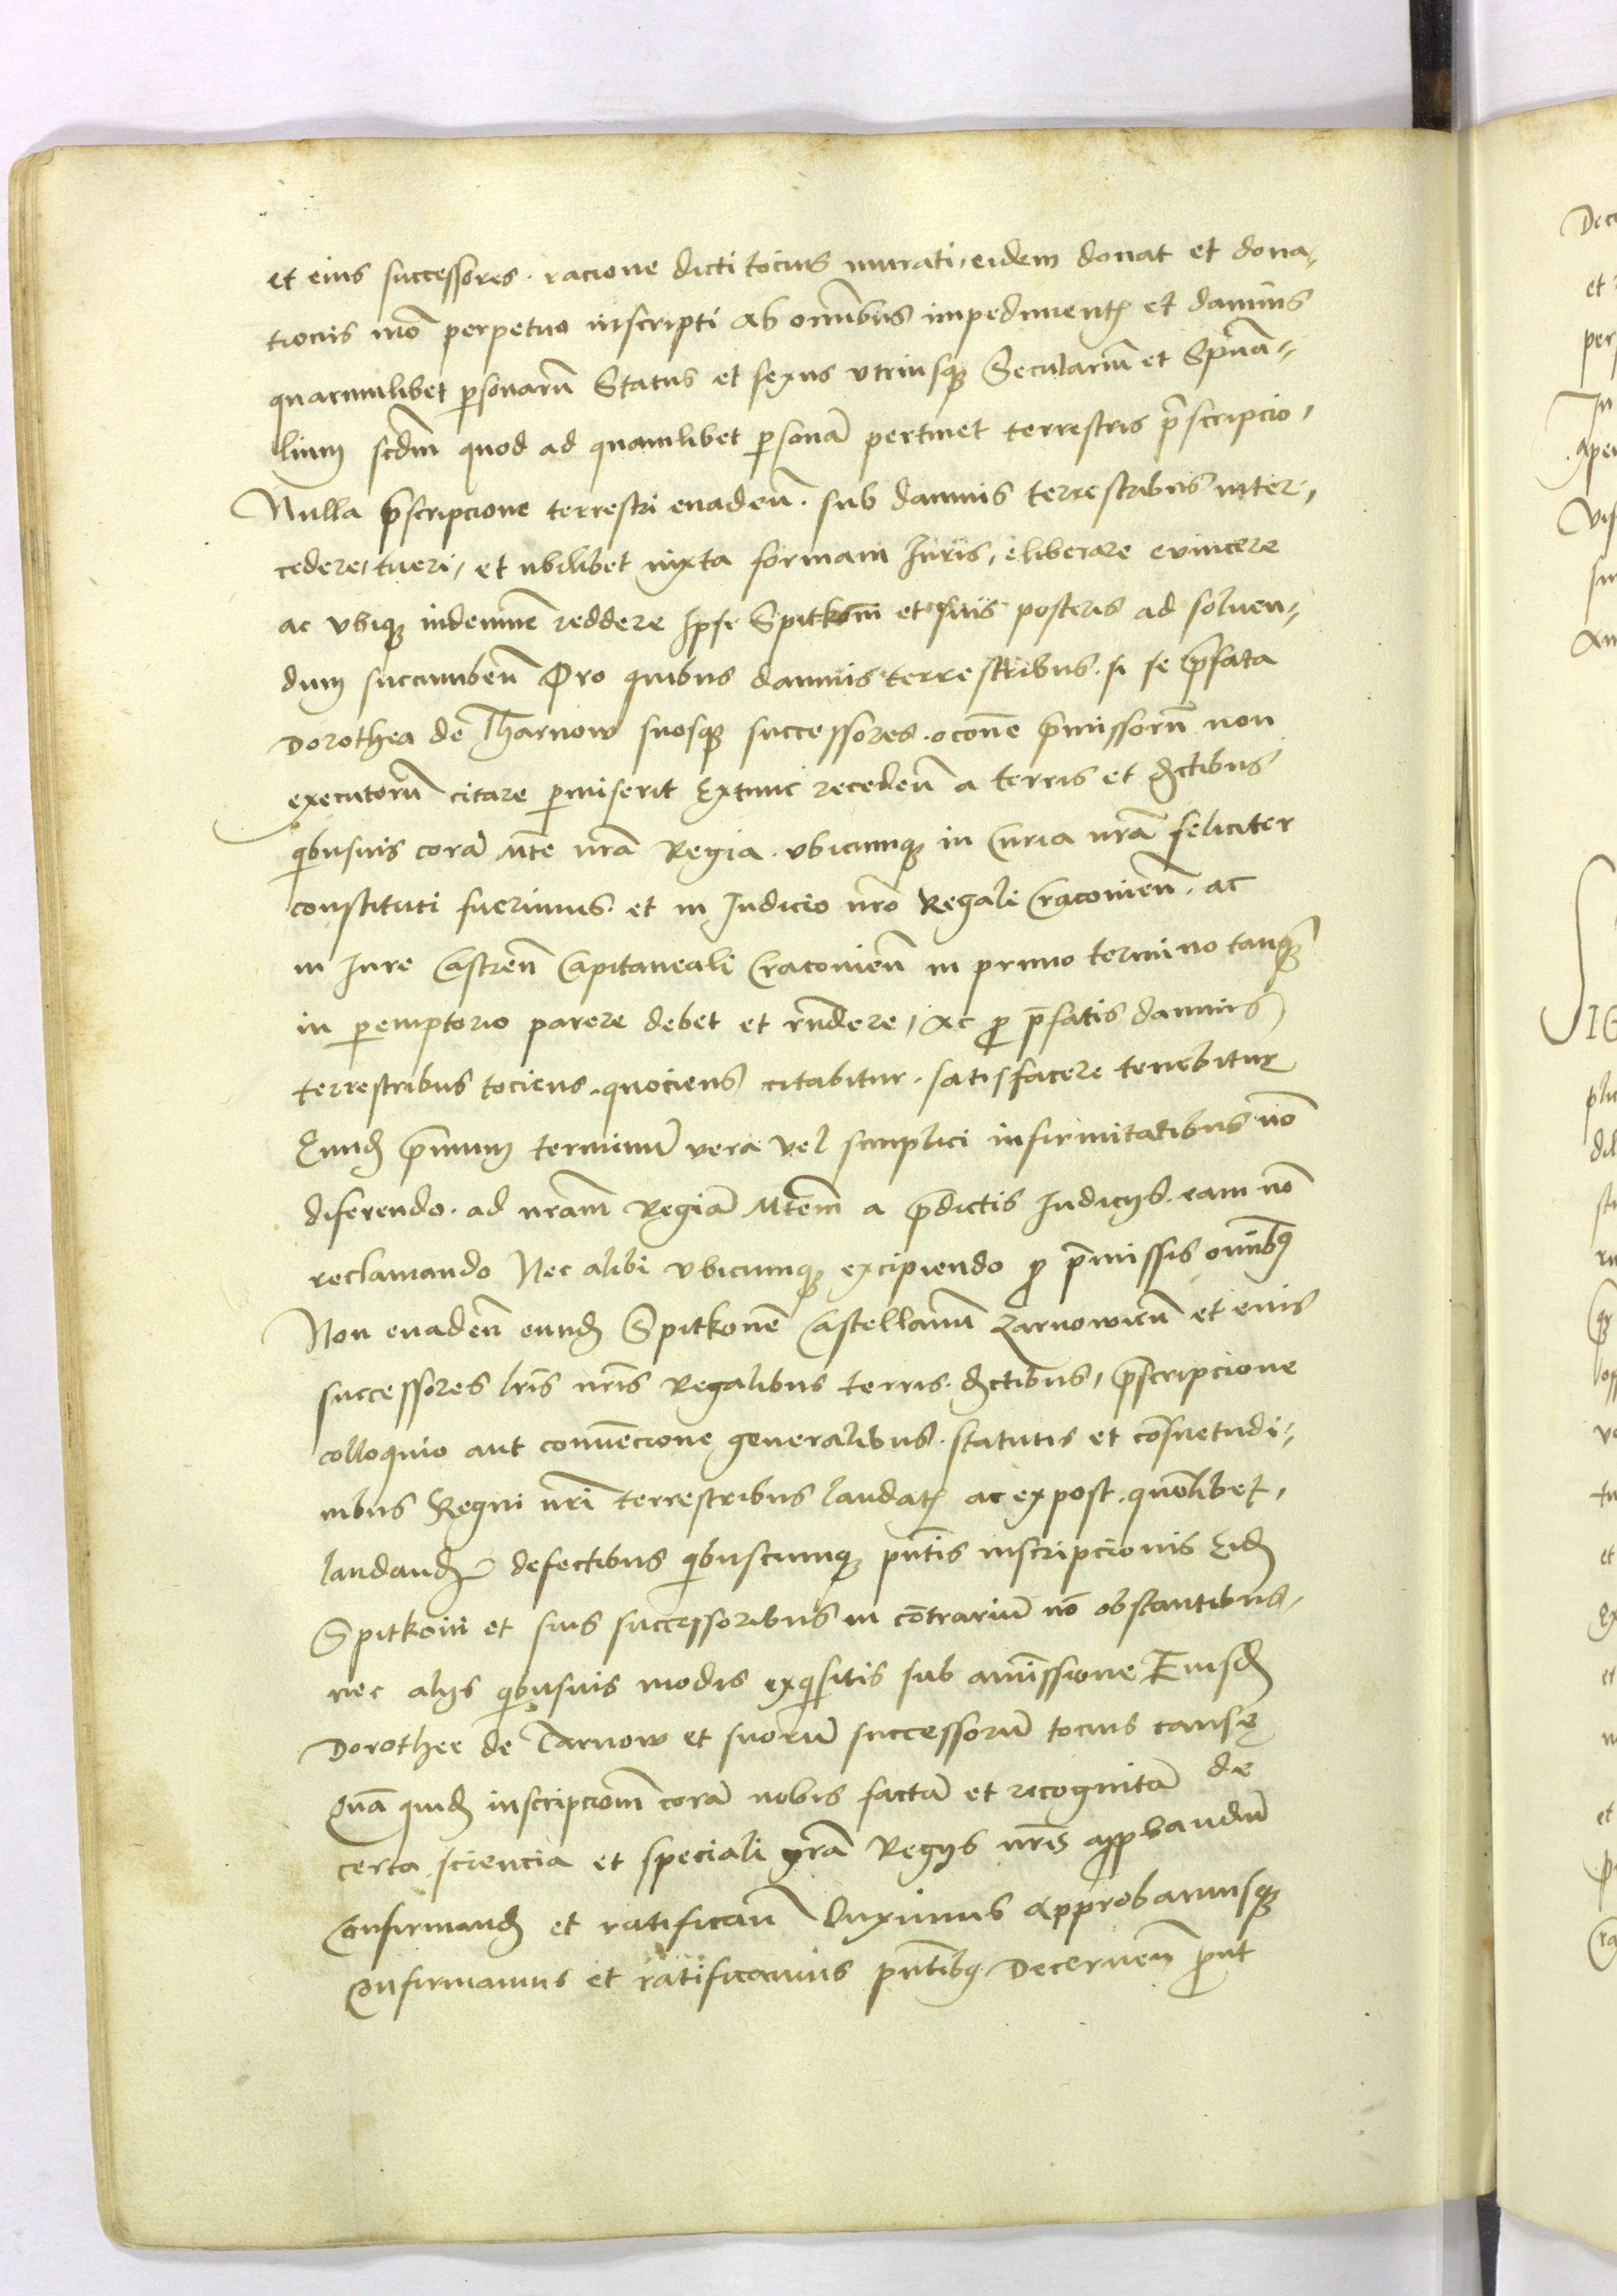 et eius successores · racione dicti tocius murati, eidem donat et dona,
tionis mõ perpetuo inscripti ab omĩbus impedimentꝭ et damnis
quarumlibet ꝑsonarũ Status et sexus vtriusqꝫ Secularium et Spũa-
lium scdm̃ quod ad quamlibet ꝑsonã pertinet terrestris p̃scripcio,
Nulla p̃scripcione terrestri euadeñ · sub damnis terrestribus inter,
cedere, tueri, et ubilibet iuxta formam Juris, eliberare euincere
ac vbiqꝫ indemnẽ reddere Ipse Spitkoni et suis posteris ad soluen-
dum succumbeñ Pro quibus damnis terrestribus · si se p̃fata
Dorothea de Tharnow suosqꝫ successores · occõne p̃missorũ non
executorũ citare ꝑmiserit Extunc recedeñ a terris et Dctibus
qᵢbusuis corã Mte nrã Regia · vbicumqꝫ in Curia nrã feliciter
constituti fuerimus · et in Judicio nrõ Regali Cracouieñ · ac
in Jure Castreñ Capitaneali Cracouieñ in primo termino tanqꝫ
in ꝑemptorio parere debet et rñdere, Ac ꝓ p̃fatis damnis
terrestribus tociens · quociens citabitur · satisfacere tenebitur
Eundꝫ p̃mum terminũ vera vel simplici infirmitatibus nõ
diferendo · ad nram̃ Regiã Mtem̃ a p̃dictis Iudicijs · eam nõ
reclamando Nec alibi vbicumqꝫ excipiendo ꝓ p̃missis omĩbꝫ
Non euadeñ eundꝫ Spitkonẽ Castellanũ Zarnowieñ et eius
successores lrĩs nrĩs Regalibus terris · Dctibus, p̃scripcione
colloquio aut conuẽcione generalibus · statutis et cõsuetudi-
nibus Regni nrĩ terrestribus laudatꝭ ac expost · quõlibet,
laudandꝭ defectibus qᵢbuscumqꝫ pñtis inscripcionis Eidꝫ
Spitkoni et suis successoribus in cõtrarium nõ obstantibus,
nec alijs qᵢbusuis modis exqᵢsitis sub amissione Eiusdꝫ
Dorothee de Tarnow et suorũ successorũ tocius cause
Quã quidꝫ inscripciom̃ corã nobis factã et recognitã de
certa sciencia et speciali grã Regijs nrĩs apꝓbandũ
Confirmandꝭ et ratificañ Duximus Approbamusqꝫ
Confirmamus et ratificamus pñtibꝫ Decerneñ ꝓut